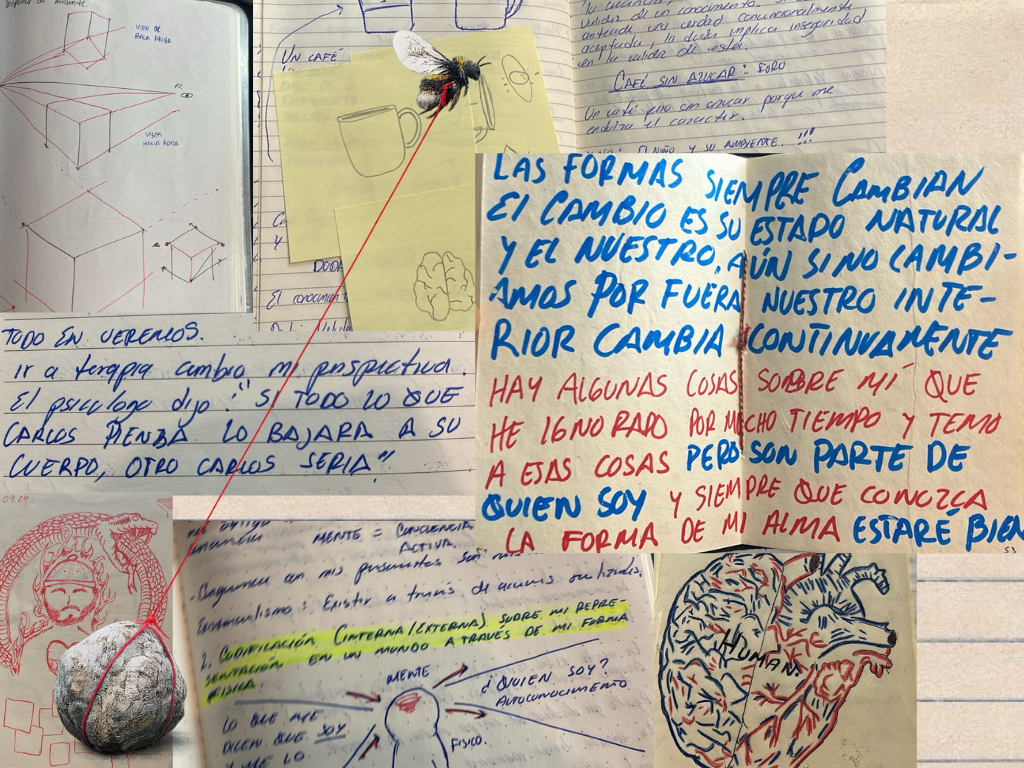 VISTA DE
HACIA ARRIBA
PZ
VISTA
HACIA ABAJO
UN CAFÉ
DUDA
El conocimien
validez de un conocimiento.
entiende una verdad convencionalmente
aceptada, la duda implica inseguridad
en la validez de esta.
CAFÉ SIN AZUCAR: FORO
Un café pero sin azucar porque me
endulza el caracter.
EL NIÑO Y SU AMBIENTE. !!!
LAS FORMAS SIEMPRE CAMBIAN
El CAMBIO ES SU ESTADO NATURAL
Y EL NUESTRO, AÚN SI NO CAMBI-
AMOS POR FUERA NUESTRO INTE-
RIOR CAMBIA CONTINUAMENTE
HAY ALGUNAS COSAS SOBRE MÍ QUE
HE IGNORADO POR MUCHO TIEMPO Y TEMO
A ESAS COSAS PERO SON PARTE DE
QUIEN SOY Y SIEMPRE QUE CONOZCA
LA FORMA DE MI ALMA ESTARÉ BIEN
53
TODO EN VEREMOS.
ir a terapia cambio mi perspectiva.
El psicologo dijo: "SI TODO LO QUE
CARLOS PIENZA LO BAJARA A SU
CUERPO, OTRO CARLOS SERIA".
09.09
MENTE = CONCIENCIA
ACTIVA.
Existir a través de
2. CODIFICACIÓN (INTERNA/EXTERNA) SOBRE MI REPRE-
SENTACIÓN EN UN MUNDO A TRAVÉS DE MI FORMA
FISICA
MENTE
¿QUIEN SOY?
AUTOCONOCIMIENTO
LO QUE ME
DICEN QUE SOY
Y ME LO
FISICO.
HUMAN.